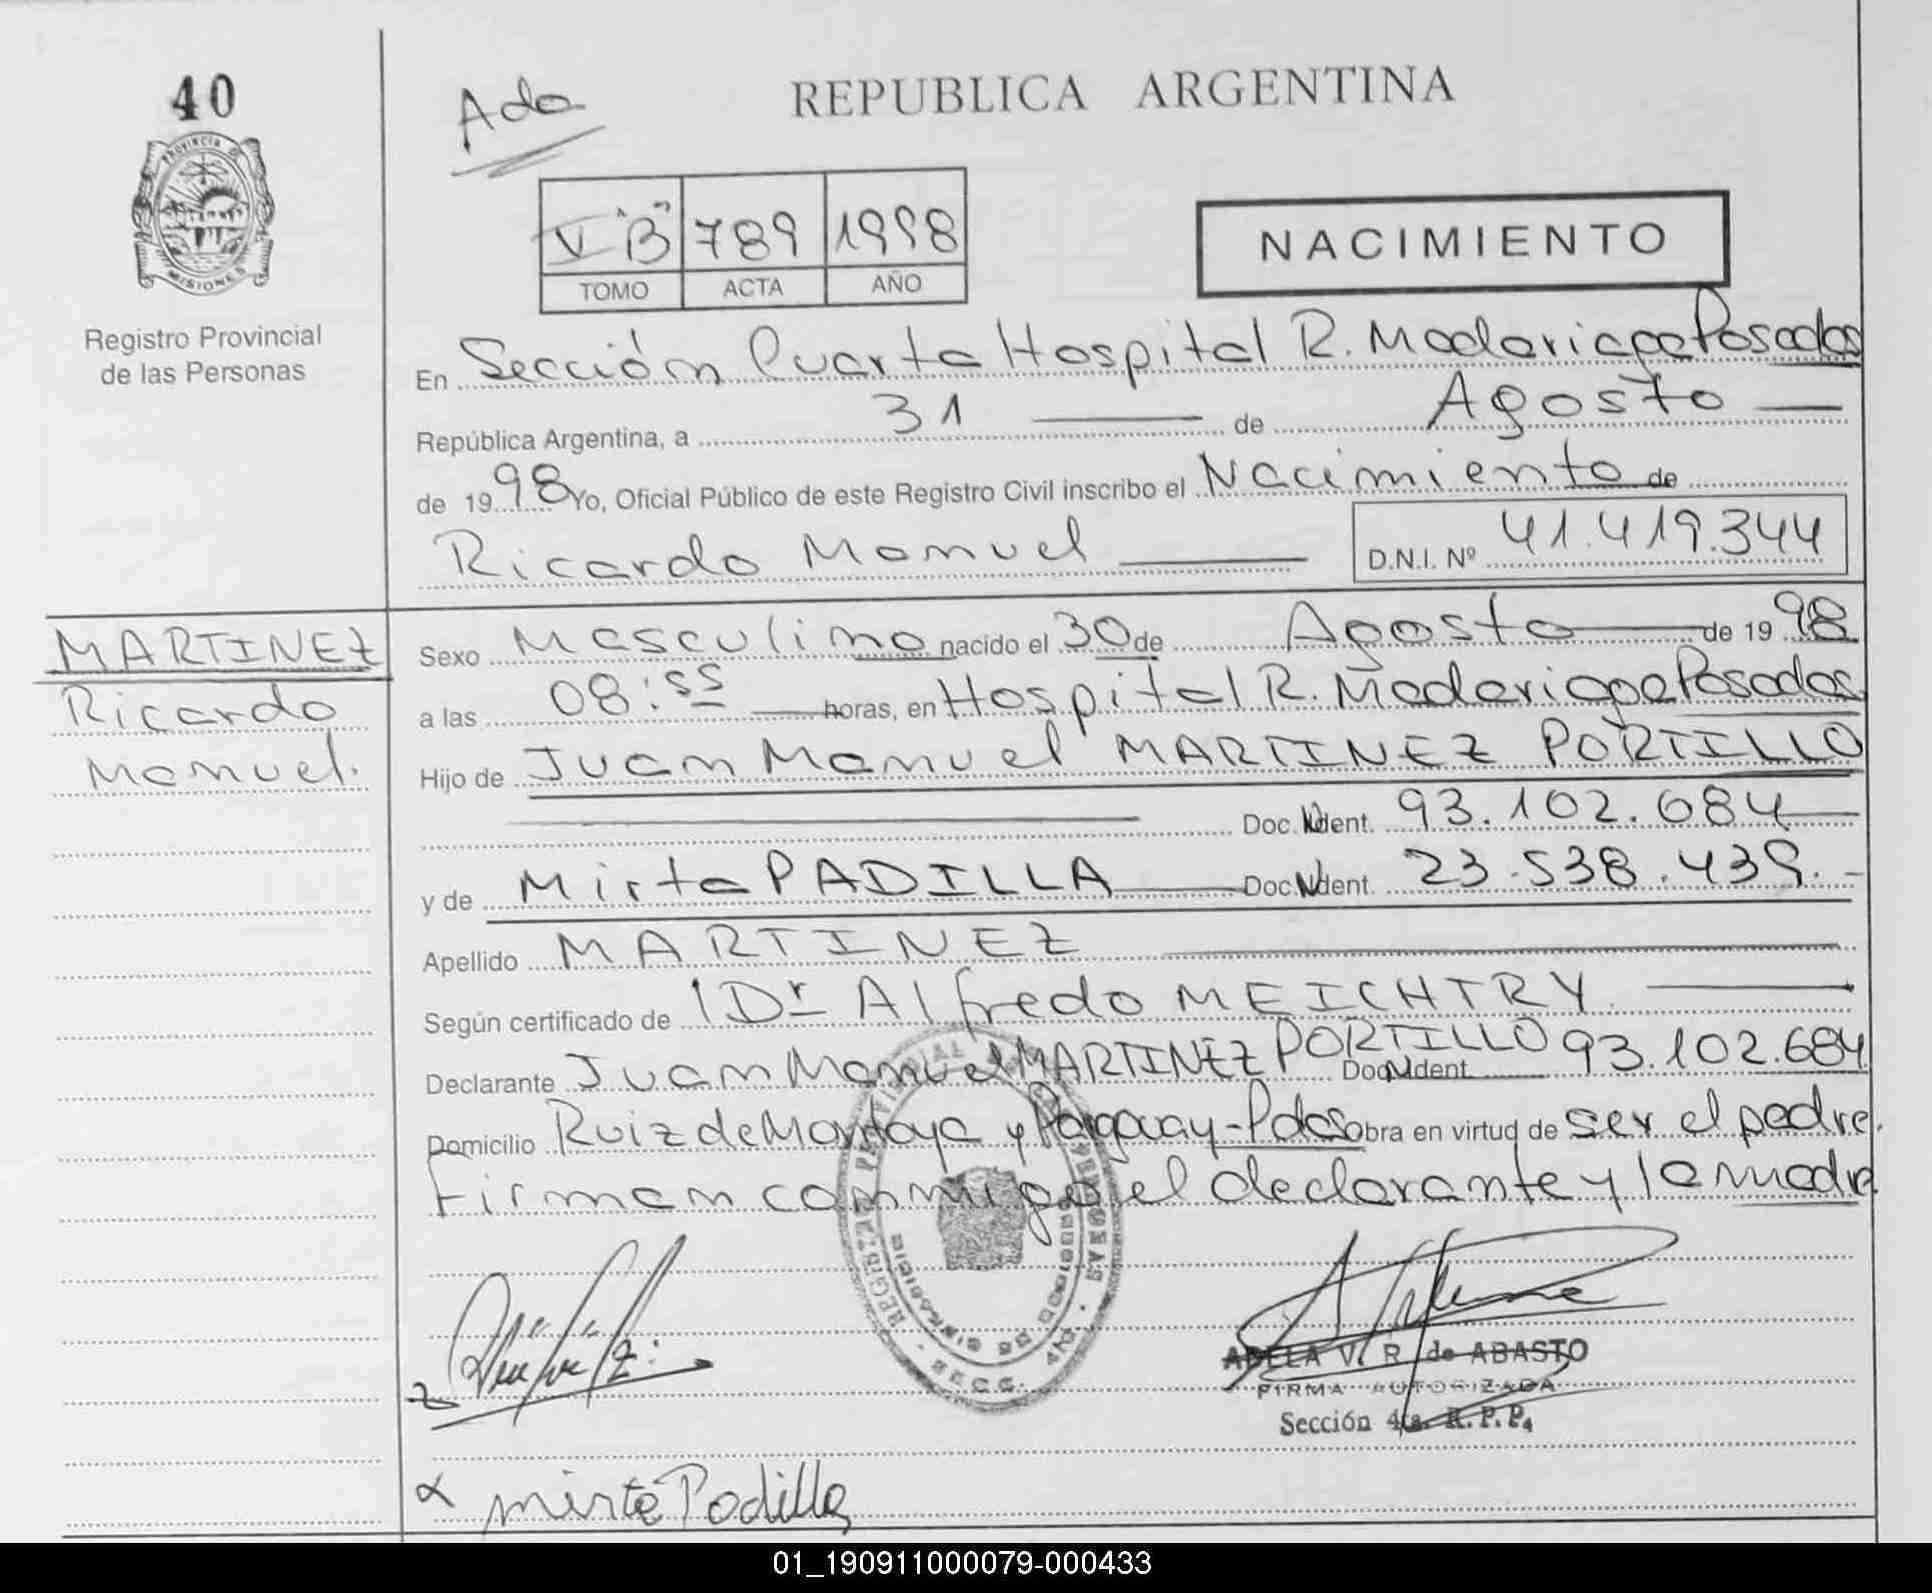 40
Ada
REPUBLICA ARGENTINA
PROVINCIA DE
MISIONES
Registro Provincial
de las Personas
V "B" 789 1998
TOMO ACTA AÑO
NACIMIENTO
En Sección Cuarta Hospital R. Madariaga Posadas
República Argentina, a 31 de Agosto
de 1998 Yo, Oficial Público de este Registro Civil inscribo el Nacimiento de
Ricardo Manuel D.N.I. Nº 41.419.344
MARTINEZ
Ricardo
Manuel.
Sexo Masculino nacido el 30 de Agosto de 1998
a las 08:55 horas, en Hospital R. Madariaga Posadas
Hijo de Juan Manuel MARTINEZ PORTILLO
Doc. Ident. 93.102.684
y de Mirta PADILLA Doc. Ident. 23.538.439.
Apellido MARTINEZ
Según certificado de Dr Alfredo MEICHTRY
Declarante Juan Manuel MARTINEZ PORTILLO Doc. Ident. 93.102.684
Domicilio Ruiz de Montoya y Paraguay-Pdas Obra en virtud de ser el padre.
Firman conmigo el declarante y la madre
ADELA V. R. de ABASTO
FIRMA AUTORIZADA
Sección 4ta. R. P. P.
Mirta Padilla
01_190911000079-000433